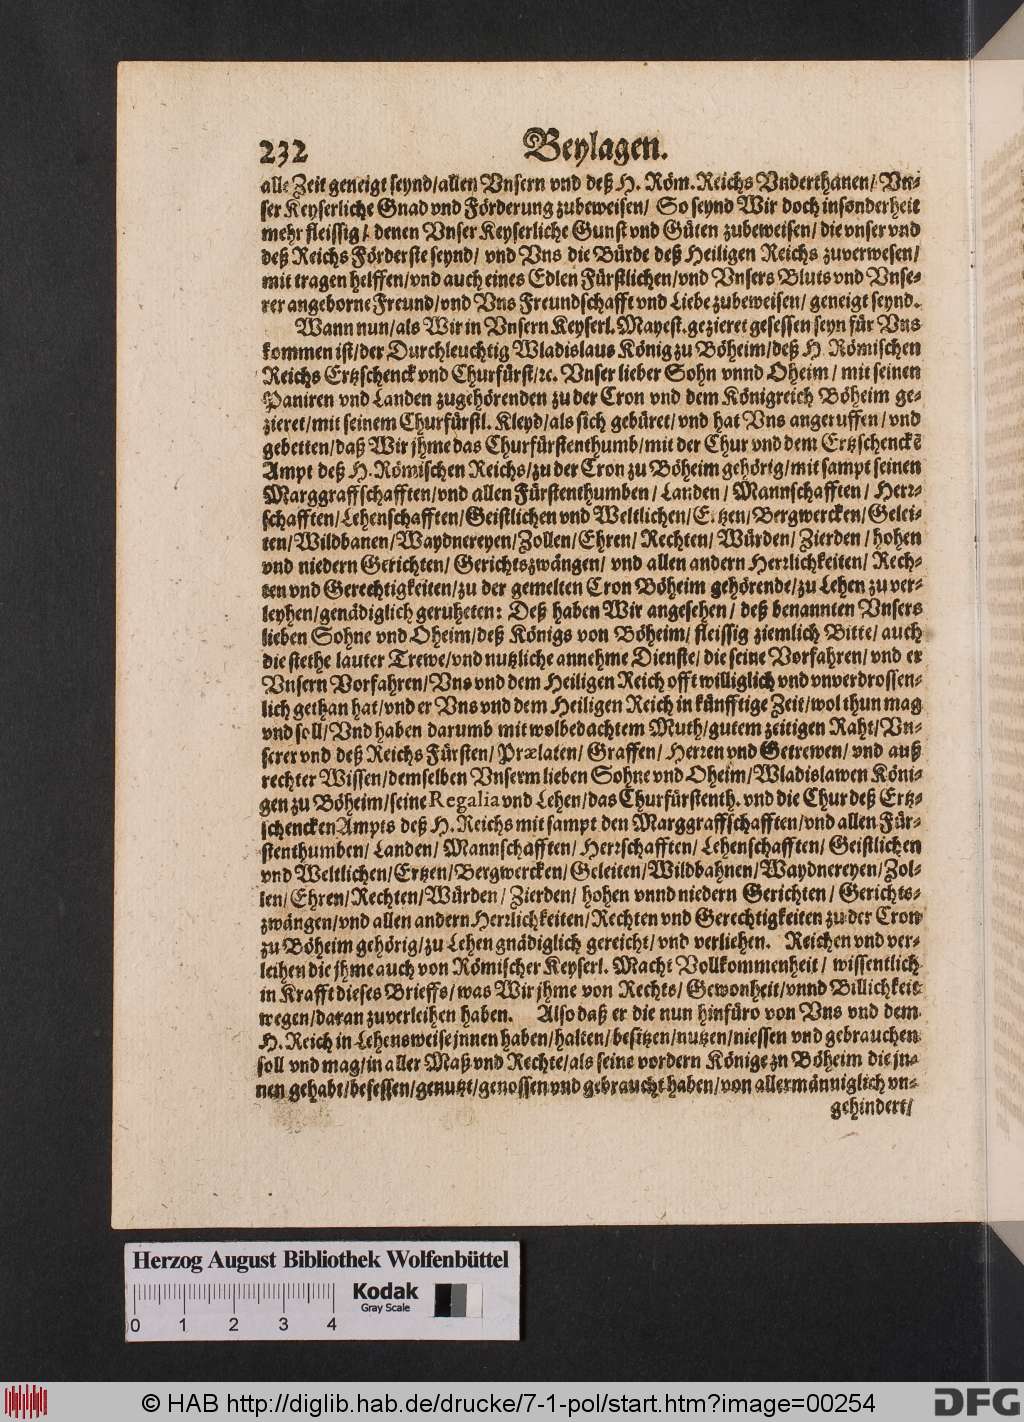 232 Beylagen.
alle Zeit geneigt seynd/allen Vnsern vnd deß H. Röm. Reichs Vnderthanen/ Vn-
ser Keyserliche Gnad vnd Förderung zubeweisen/ So seynd Wir doch insonderheit
mehr fleissig/ denen Vnser Keyserliche Gunst vnd Güten zubeweisen/ die vnser vnd
deß Reichs Förderste seynd/ vnd Vns die Bürde deß Heiligen Reichs zuverwesen/
mit tragen helffen/vnd auch eines Edlen Fürstlichen/vnd Vnsers Bluts vnd Vnse-
rer angeborne Freund/vnd Vns Freundschafft vnd Liebe zubeweisen/ geneigt seynd.
Wann nun/als Wir in Vnsern Keyserl. Mayest. gezieret gesessen seyn für Vns
kommen ist/der Durchleuchtig Wladislaus König zu Böheim/deß H. Römischen
Reichs Ertzschenck vnd Churfürst/ꝛc. Vnser lieber Sohn vnnd Oheim/ mit seinen
Paniren vnd Landen zugehörenden zu der Cron vnd dem Königreich Böheim ge-
zieret/mit seinem Churfürstl. Kleyd/als sich gebüret/vnd hat Vns angeruffen/vnd
gebetten/daß Wir jhme das Churfürstenthumb/mit der Chur vnd dem Ertzschenckē
Ampt deß H. Römischen Reichs/zu der Cron zu Böheim gehörig/mit sampt seinen
Marggraffschafften/vnd allen Fürstenthumben/ Landen/ Mannschafften/ Herr-
schafften/Lehenschafften/Geistlichen vnd Weltlichen/E.tzen/Bergwercken/Gelei-
ten/Wildbanen/Waydnereyen/Zollen/Ehren/ Rechten/ Würden/ Zierden/ hohen
vnd niedern Gerichten/ Gerichtszwängen/ vnd allen andern Herrlichkeiten/ Rech-
ten vnd Gerechtigkeiten/zu der gemelten Cron Böheim gehörende/zu Lehen zu ver-
leyhen/genädiglich geruheten: Deß haben Wir angesehen/ deß benannten Vnsers
lieben Sohne vnd Oheim/deß Königs von Böheim/ fleissig ziemlich Bitte/ auch
die stethe lauter Trewe/vnd nutzliche annehme Dienste/ die seine Vorfahren/ vnd er
Vnsern Vorfahren/Vns vnd dem Heiligen Reich offt williglich vnd vnverdrossen-
lich gethan hat/vnd er Vns vnd dem Heiligen Reich in künfftige Zeit/wol thun mag
vnd soll/Vnd haben darumb mit wolbedachtem Muth/gutem zeitigen Raht/Vn-
serer vnd deß Reichs Fürsten/ Prælaten/ Graffen/ Herren vnd Getrewen/ vnd auß
rechter Wissen/demselben Vnserm lieben Sohne vnd Oheim/Wladislawen Köni-
gen zu Böheim/seine Regalia vnd Lehen/das Churfürstenth. vnd die Chur deß Ertz-
schencken Ampts deß H. Reichs mit sampt den Marggraffschafften/vnd allen Für-
stenthumben/ Landen/ Mannschafften/ Herrschafften/ Lehenschafften/ Geistlichen
vnd Weltlichen/Ertzen/Bergwercken/Geleiten/Wildbahnen/Waydnereyen/Zol-
len/Ehren/Rechten/Würden/ Zierden/ hohen vnnd niedern Gerichten/ Gerichts-
zwängen/vnd allen andern Herrlichkeiten/Rechten vnd Gerechtigkeiten zu der Cron
zu Böheim gehörig/zu Lehen gnädiglich gereicht/ vnd verliehen. Reichen vnd ver-
leihen die jhme auch von Römischer Keyserl. Macht Vollkommenheit/ wissentlich
in Krafft dieses Brieffs/was Wir jhme von Rechts/ Gewonheit/vnnd Billichkeit
wegen/daran zuverleihen haben. Also daß er die nun hinfüro von Vns vnd dem
H. Reich in Lehensweise jnnen haben/halten/besitzen/nutzen/niessen vnd gebrauchen
soll vnd mag/in aller Maß vnd Rechte/als seine vordern Könige zn Böheim die jn-
nen gehabt/besessen/genutzt/genossen vnd gebraucht haben/von allermänniglich vn-
gehindert/
Herzog August Bibliothek Wolfenbüttel
Kodak
Gray Scale
0 1 2 3 4
© HAB http://diglib.hab.de/drucke/7-1-pol/start.htm?image=00254
DFG